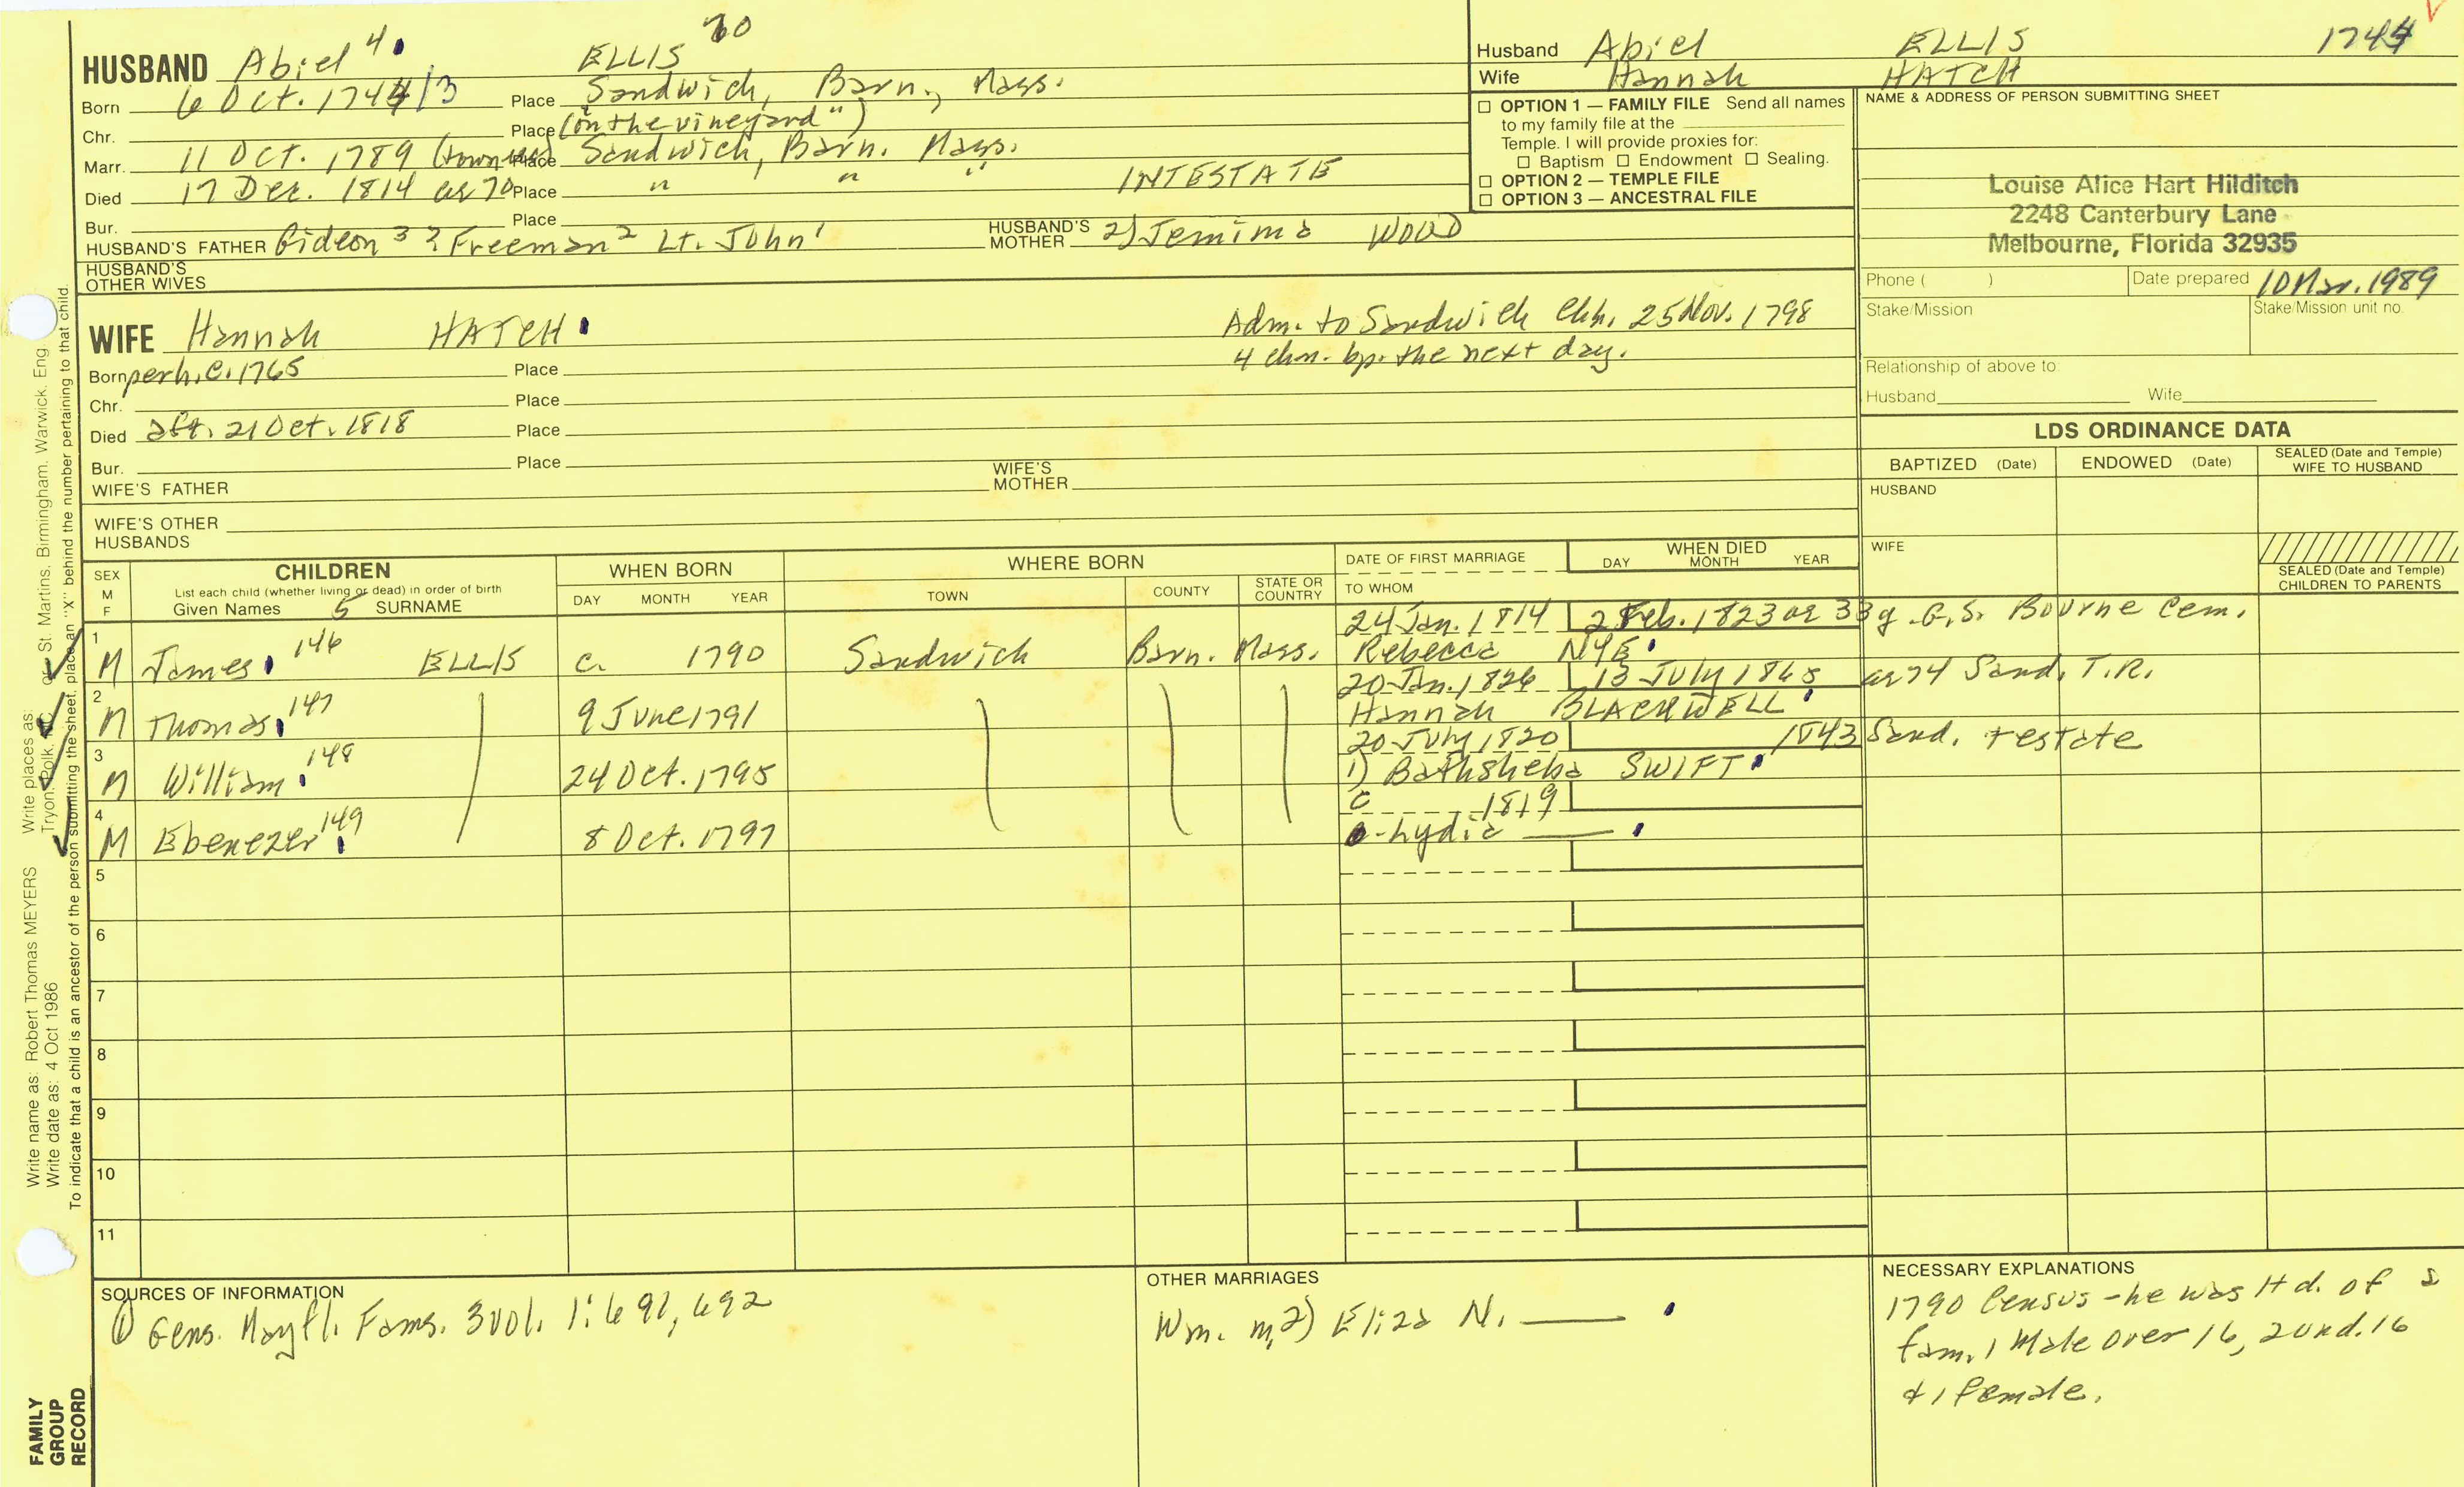 HUSBAND Abiel 4 ELLIS 70
Born 6 Oct. 1744/3 Place Sandwich, Barn., Mass.
Chr. Place (on the vineyard")
Marr. 11 Oct. 1789 Place Sandwich, Barn. Mass.
Died 17 Dec. 1814 ae 70 Place " " " INTESTATE
Bur. Place
HUSBAND'S FATHER Gideon 3 ? Freeman 2 Lt. John 1 HUSBAND'S MOTHER 2) Jemima WOOD
HUSBAND'S OTHER WIVES
Husband Abiel ELLIS 1744
Wife Hannah HATCH
☐ OPTION 1 — FAMILY FILE Send all names
to my family file at the
Temple. I will provide proxies for:
☐ Baptism ☐ Endowment ☐ Sealing.
☐ OPTION 2 — TEMPLE FILE
☐ OPTION 3 — ANCESTRAL FILE
NAME & ADDRESS OF PERSON SUBMITTING SHEET
Louise Alice Hart Hilditch
2248 Canterbury Lane
Melbourne, Florida 32935
Phone ( ) Date prepared 10 Mar. 1989
Stake/Mission Stake/Mission unit no.
Relationship of above to:
Husband Wife
WIFE Hannah HATCH
Adm. to Sandwich Chh. 25 Nov. 1798
4 chn. bp. the next day.
Born perh. c. 1765 Place
Chr. Place
Died aft. 21 Oct. 1818 Place
Bur. Place
WIFE'S FATHER WIFE'S MOTHER
WIFE'S OTHER HUSBANDS
LDS ORDINANCE DATA
BAPTIZED (Date) ENDOWED (Date) SEALED (Date and Temple) WIFE TO HUSBAND
HUSBAND
WIFE
SEALED (Date and Temple) CHILDREN TO PARENTS
SEX M F
CHILDREN
List each child (whether living or dead) in order of birth
Given Names 5 SURNAME
WHEN BORN
DAY MONTH YEAR
WHERE BORN
TOWN COUNTY STATE OR COUNTRY
DATE OF FIRST MARRIAGE
TO WHOM
WHEN DIED
DAY MONTH YEAR
24 Jan. 1814 2 Feb. 1823 ae 33 g.s. Bourne Cem.
1 M James 146 ELLIS c. 1790 Sandwich Barn. Mass. Rebecca NYE
20 Jan. 1826 13 July 1865 ae 74 Sand. T.R.
2 M Thomas 147 9 June 1791 Hannah BLACKWELL
20 July 1820 1843 Sand. testate
3 M William 148 24 Oct. 1795 1) Bathsheba SWIFT
c 1819
4 M Ebenezer 149 8 Oct. 1797 Lydia
5
6
7
8
9
10
11
SOURCES OF INFORMATION
① Gens. Mayfl. Fams. 3 vol. 1: 691, 692
OTHER MARRIAGES
Wm. m. 2) Eliza N.
NECESSARY EXPLANATIONS
1790 Census - he was Hd. of a
fam. 1 Male over 16, 2 und. 16
& 1 female.
Write name as: Robert Thomas MEYERS Write places as: Tryon, Polk, NC or St. Martins, Birmingham, Warwick, Eng.
Write date as: 4 Oct 1986
To indicate that a child is an ancestor of the person submitting the sheet, place an "X" behind the number pertaining to that child.
FAMILY
GROUP
RECORD